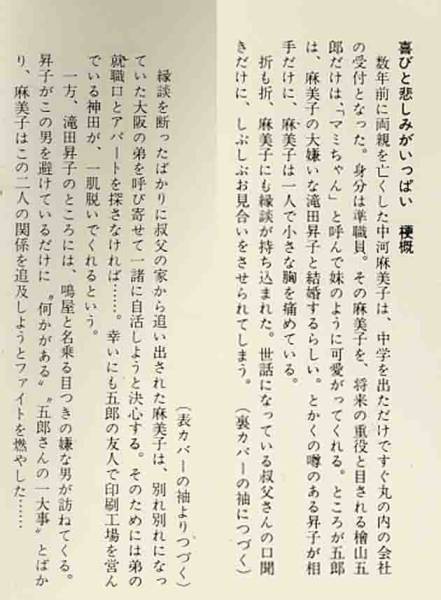 喜びと悲しみがいっぱい　梗概
　数年前に両親を亡くした中河麻美子は、中学を出ただけですぐ丸の内の会社
の受付となった。身分は準職員。その麻美子を、将来の重役と目される檜山五
郎だけは、「マミちゃん」と呼んで妹のように可愛がってくれる。ところが五郎
は、麻美子の大嫌いな滝田昇子と結婚するらしい。とかくの噂のある昇子が相
手だけに、麻美子は一人で小さな胸を痛めている。
　折も折、麻美子にも縁談が持ち込まれた。世話になっている叔父さんの口聞
きだけに、しぶしぶお見合いをさせられてしまう。　（裏カバーの袖につづく）
（表カバーの袖よりつづく）
　縁談を断ったばかりに叔父の家から追い出された麻美子は、別れ別れになっ
ていた大阪の弟を呼び寄せて一諸に自活しようと決心する。そのためには弟の
就職口とアパートを探さなければ……。幸いにも五郎の友人で印刷工場を営ん
でいる神田が、一肌脱いでくれるという。
　一方、滝田昇子のところには、鳴屋と名乗る目つきの嫌な男が訪ねてくる。
昇子がこの男を避けているだけに〝何かがある〟〝五郎さんの一大事〟とばか
り、麻美子はこの二人の関係を追及しようとファイトを燃やした……